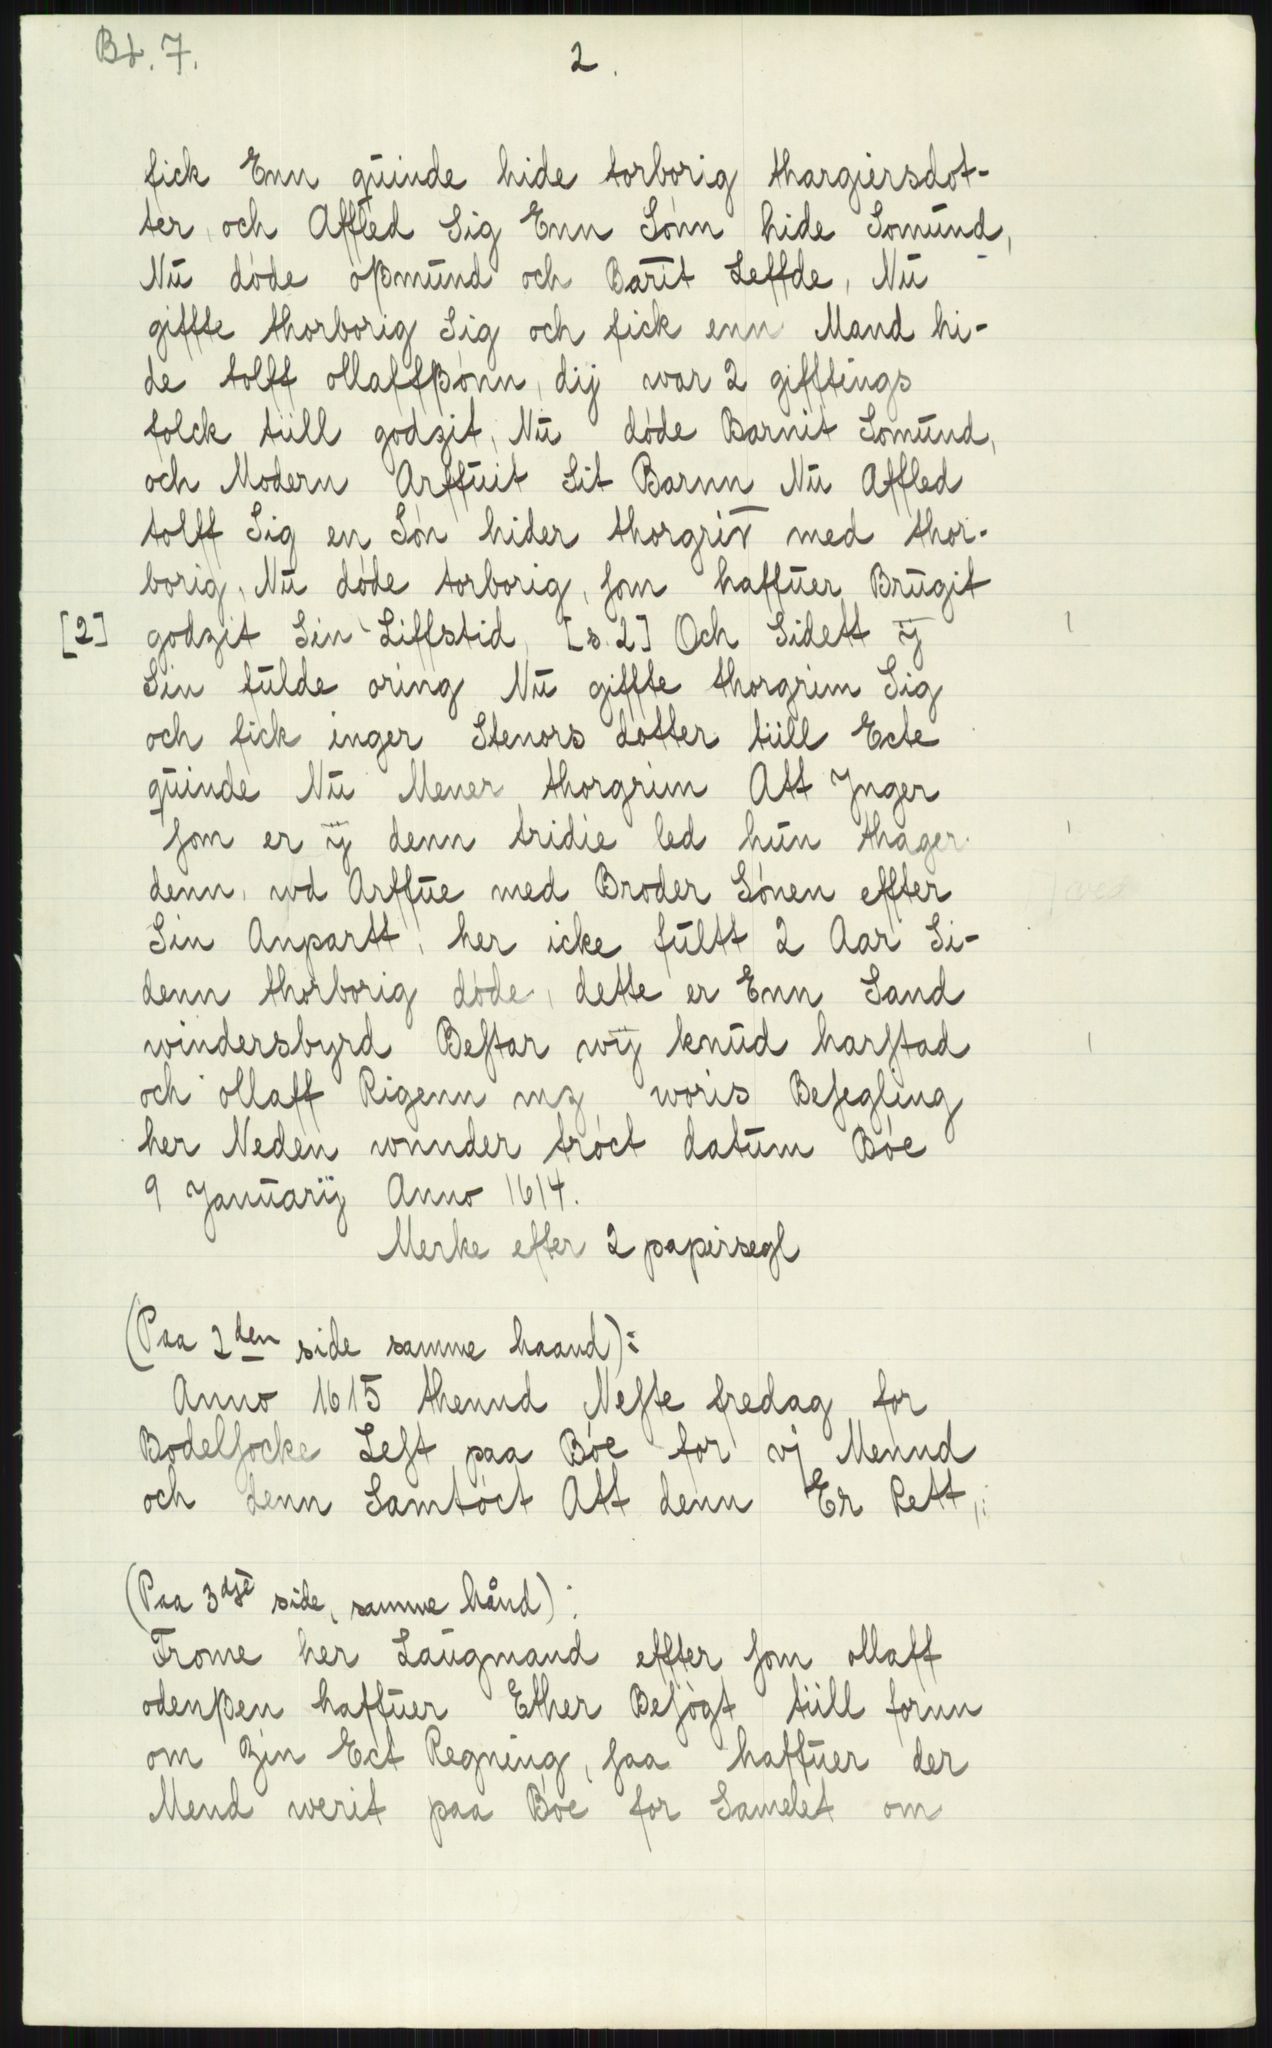 Bt. 7.
2.
fick Enn quinde hide torborig thargiersdot-
ter, och Affled Sig Enn Sónn hide Somund,
Nu dóde oßmund och Barit Leffde, Nu
giffte thorborig Sig och fick enn Mand hi-
de tolff ollaffßónn, dij war 2 gifftings
folck tiill godzit, Nu dóde Barnit Somund,
och Modern Arffuit Sit Barnn Nu Affled
tolff Sig en Són hider thorgrim̄ med thor-
borig, Nu dóde torborig, som haffuer Brugit
[2] godzit Sin Liffstid, [s. 2] Och Sidett ij
Sin fulde oring Nu giffte thorgrim Sig
och fick inger Stenors dotter tiill Ecte
quinde Nu Mener thorgrim Att Ynger
som er ij denn tridie led hun thager
denn, wd Arffue med Broder Sónen effter
Sin Anpartt, her icke fultt 2 Aar Si-
denn thorborig dóde, dette er Enn Sand
windersbyrd Bestar wij knud harstad
och ollaff Rigenn mz woris Besegling
her Neden wnnder tróct datum Bóe
9 Januarij Anno 1614.
Merke efter 2 papirsegl
(Paa 2den side samme haand):
Anno 1615 thennd Neste fredag for
Bodelsocke Lest paa Bóe for vj Mennd
och denn Samtóct Att denn Er Rett,:
(Paa 3dje side, samme hånd):
Frome her Laugmand effter som ollaff
odenßen haffuer Ether Besógt tiill fornn
om Zin Ect Regning, saa haffuer der
Mend werit paa Bóe for Samelet om